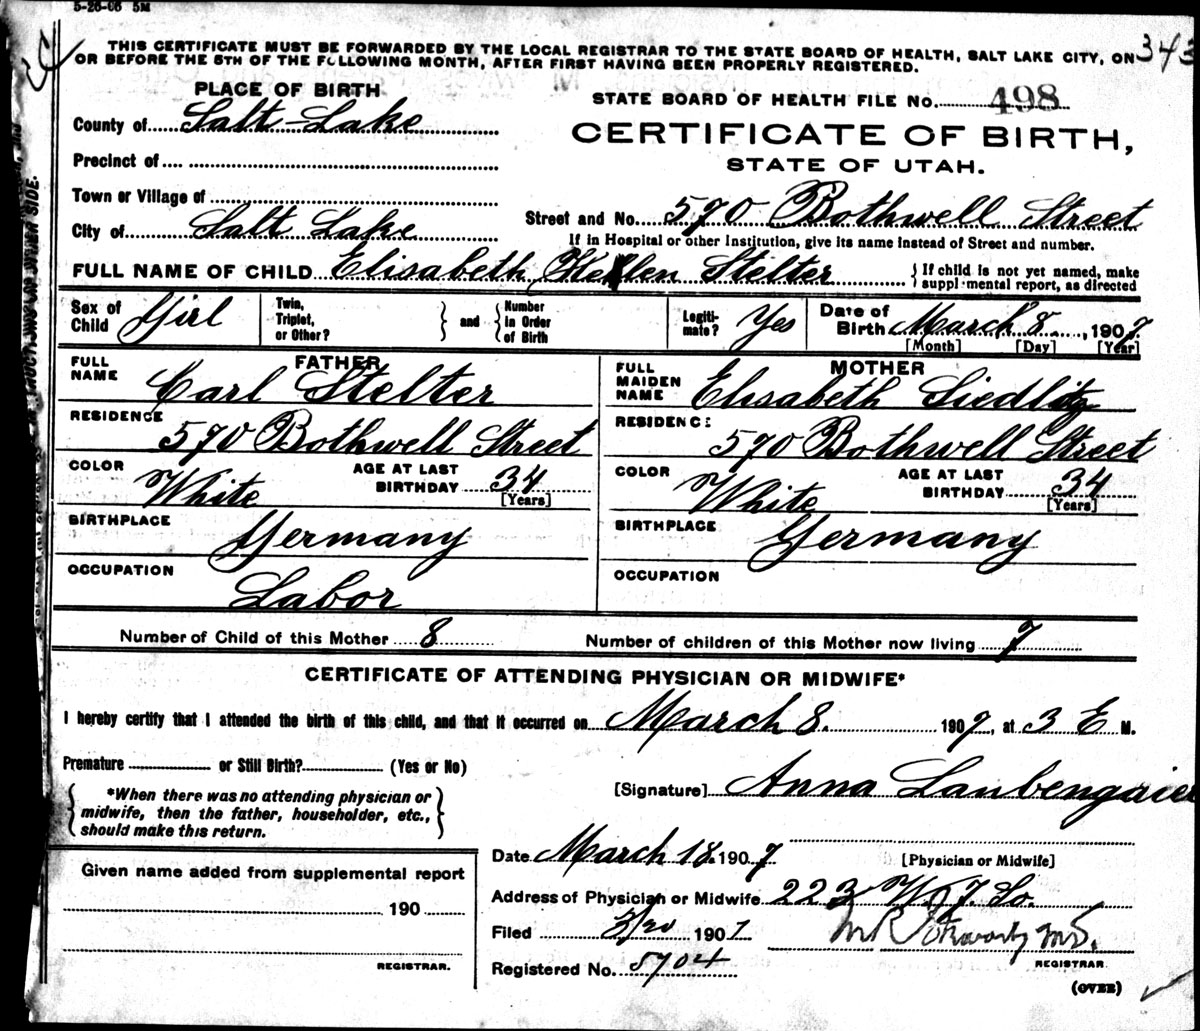 5-26-06 5M
343
THIS CERTIFICATE MUST BE FORWARDED BY THE LOCAL REGISTRAR TO THE STATE BOARD OF HEALTH, SALT LAKE CITY, ON
OR BEFORE THE 5TH OF THE FOLLOWING MONTH, AFTER FIRST HAVING BEEN PROPERLY REGISTERED.
PLACE OF BIRTH
STATE BOARD OF HEALTH FILE No. 498
County of Salt Lake
CERTIFICATE OF BIRTH,
STATE OF UTAH.
Precinct of
Town or Village of
Street and No. 570 Bothwell Street
City of Salt Lake
If in Hospital or other Institution, give its name instead of Street and number.
FULL NAME OF CHILD Elisabeth Hellen Stelter
If child is not yet named, make
supplemental report, as directed
Sex of Child Girl
Twin, Triplet, or Other? and Number in Order of Birth
Legiti-mate? Yes
Date of Birth March 8, 1907
[Month] [Day] [Year]
FATHER
FULL NAME Carl Stelter
RESIDENCE 570 Bothwell Street
COLOR White
AGE AT LAST BIRTHDAY 34
[Years]
BIRTHPLACE Germany
OCCUPATION Labor
MOTHER
FULL MAIDEN NAME Elisabeth Siedlitz
RESIDENCE 570 Bothwell Street
COLOR White
AGE AT LAST BIRTHDAY 34
[Years]
BIRTHPLACE Germany
OCCUPATION
Number of Child of this Mother 8
Number of children of this Mother now living 7
CERTIFICATE OF ATTENDING PHYSICIAN OR MIDWIFE*
I hereby certify that I attended the birth of this child, and that it occurred on March 8. 1907, at 3 E M.
Premature or Still Birth? (Yes or No)
*When there was no attending physician or
midwife, then the father, householder, etc.,
should make this return.
[Signature] Anna Laubengaier
Date March 18. 1907
[Physician or Midwife]
Given name added from supplemental report
190
REGISTRAR.
Address of Physician or Midwife 223 W
Filed 3/20 1907
M.D.
REGISTRAR.
Registered No. 5704
(OVER)